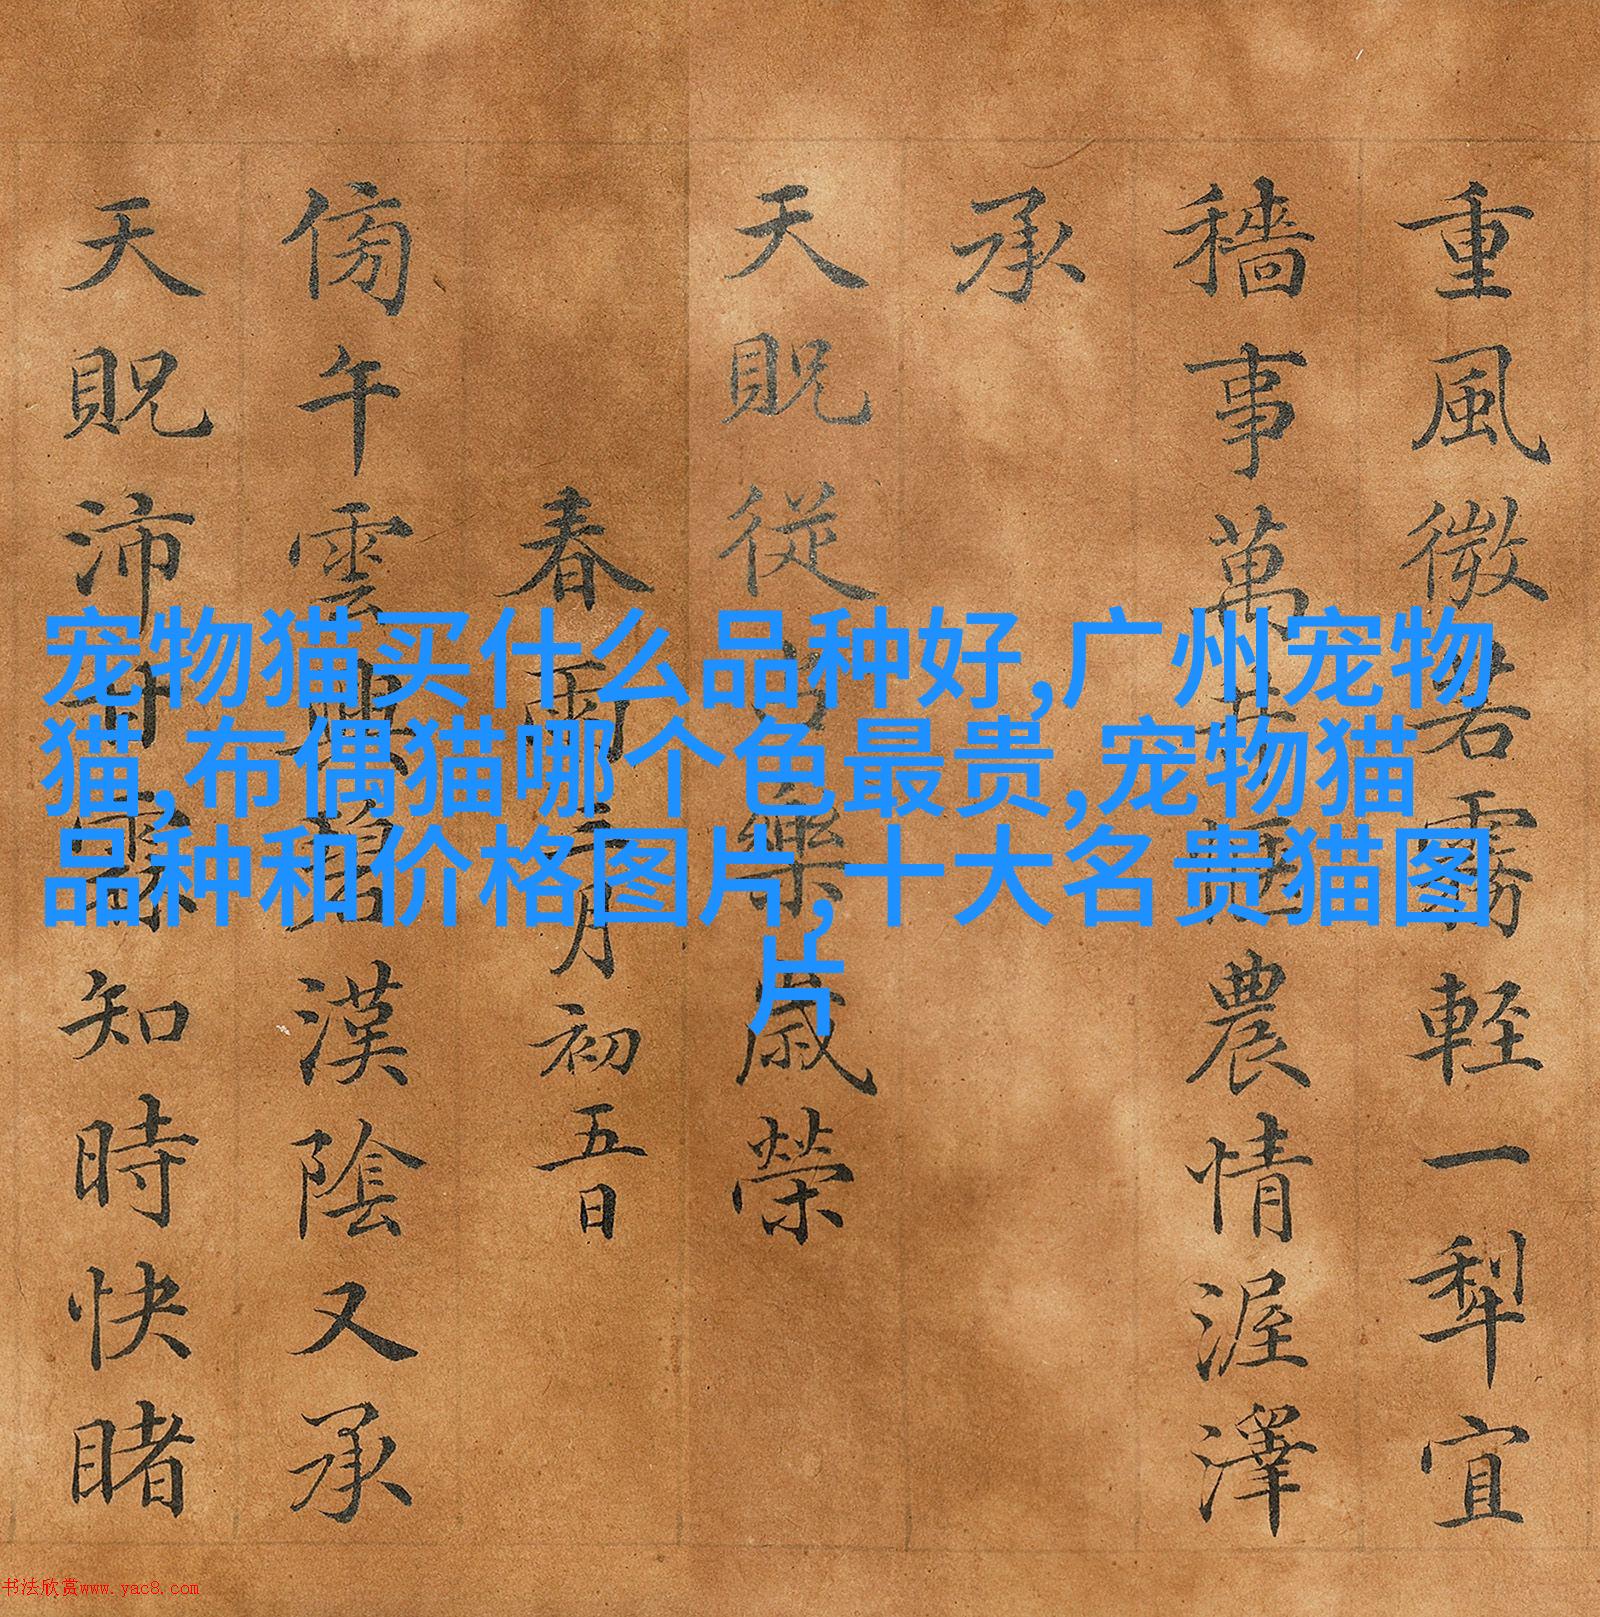 宠物猫买什么品种好,广州宠物
猫,布偶猫哪个色最贵,宠物猫
品种和价格图片,十大名贵猫图
片
重風微若霧輕一犁宜
穡事萬農情渥澤
承
天貺從樂歲榮
春雨月初五日
傍午雲漢陰又承
天貺沛甘霖知時快睹
书法欣赏www.yac8.com